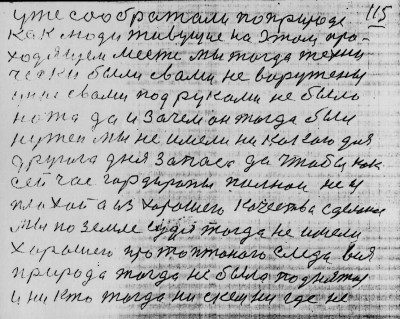 115
уже соображали по природе
как люди живущие на этом про-
ходящем месте мы тогда техни
чески были с вами не воружены
у нас с вами под руками не было
ножа да и зачем он тогда был
нужен мы не имели никакого дня
другого дня запаса да чтобы как
сейчас гардиропы полной не у
плохой а из хорошего качества сделана
мы по земле идя тогда не имели
хорошего протоптаного следа вся
природа тогда не была поднята
и никто тогда ни с кем ни где не